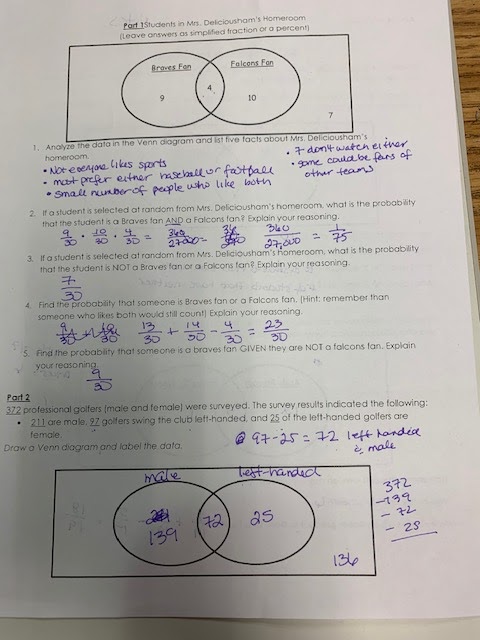 Part 1 Students in Mrs. Deliciousham's Homeroom
(Leave answers as simplified fraction or a percent)
Braves Fan
Falcons Fan
9
4
10
7
1. Analyze the data in the Venn diagram and list five facts about Mrs. Deliciousham's
homeroom.
• Not everyone likes sports
• most prefer either baseball or football
• small number of people who like both
• 7 don't watch either
• some could be fans of
other teams
2. If a student is selected at random from Mrs. Deliciousham's homeroom, what is the probability
that the student is a Braves fan AND a Falcons fan? Explain your reasoning.
9/30 · 10/30 · 4/30 = 360/27000 = 360/27,000 = 1/75
3. If a student is selected at random from Mrs. Deliciousham's homeroom, what is the probability
that the student is NOT a Braves fan or a Falcons fan? Explain your reasoning.
7/30
4. Find the probability that someone is Braves fan or a Falcons fan. (Hint: remember than
someone who likes both would still count) Explain your reasoning.
13/30 + 14/30 - 4/30 = 23/30
5. Find the probability that someone is a braves fan GIVEN they are NOT a falcons fan. Explain
your reasoning.
9/30
Part 2
372 professional golfers (male and female) were surveyed. The survey results indicated the following:
• 211 are male, 97 golfers swing the club left-handed, and 25 of the left-handed golfers are
female.
97-25 = 72 left handed
& male
Draw a Venn diagram and label the data.
male
left-handed
139
72
25
136
372
-139
- 72
- 25